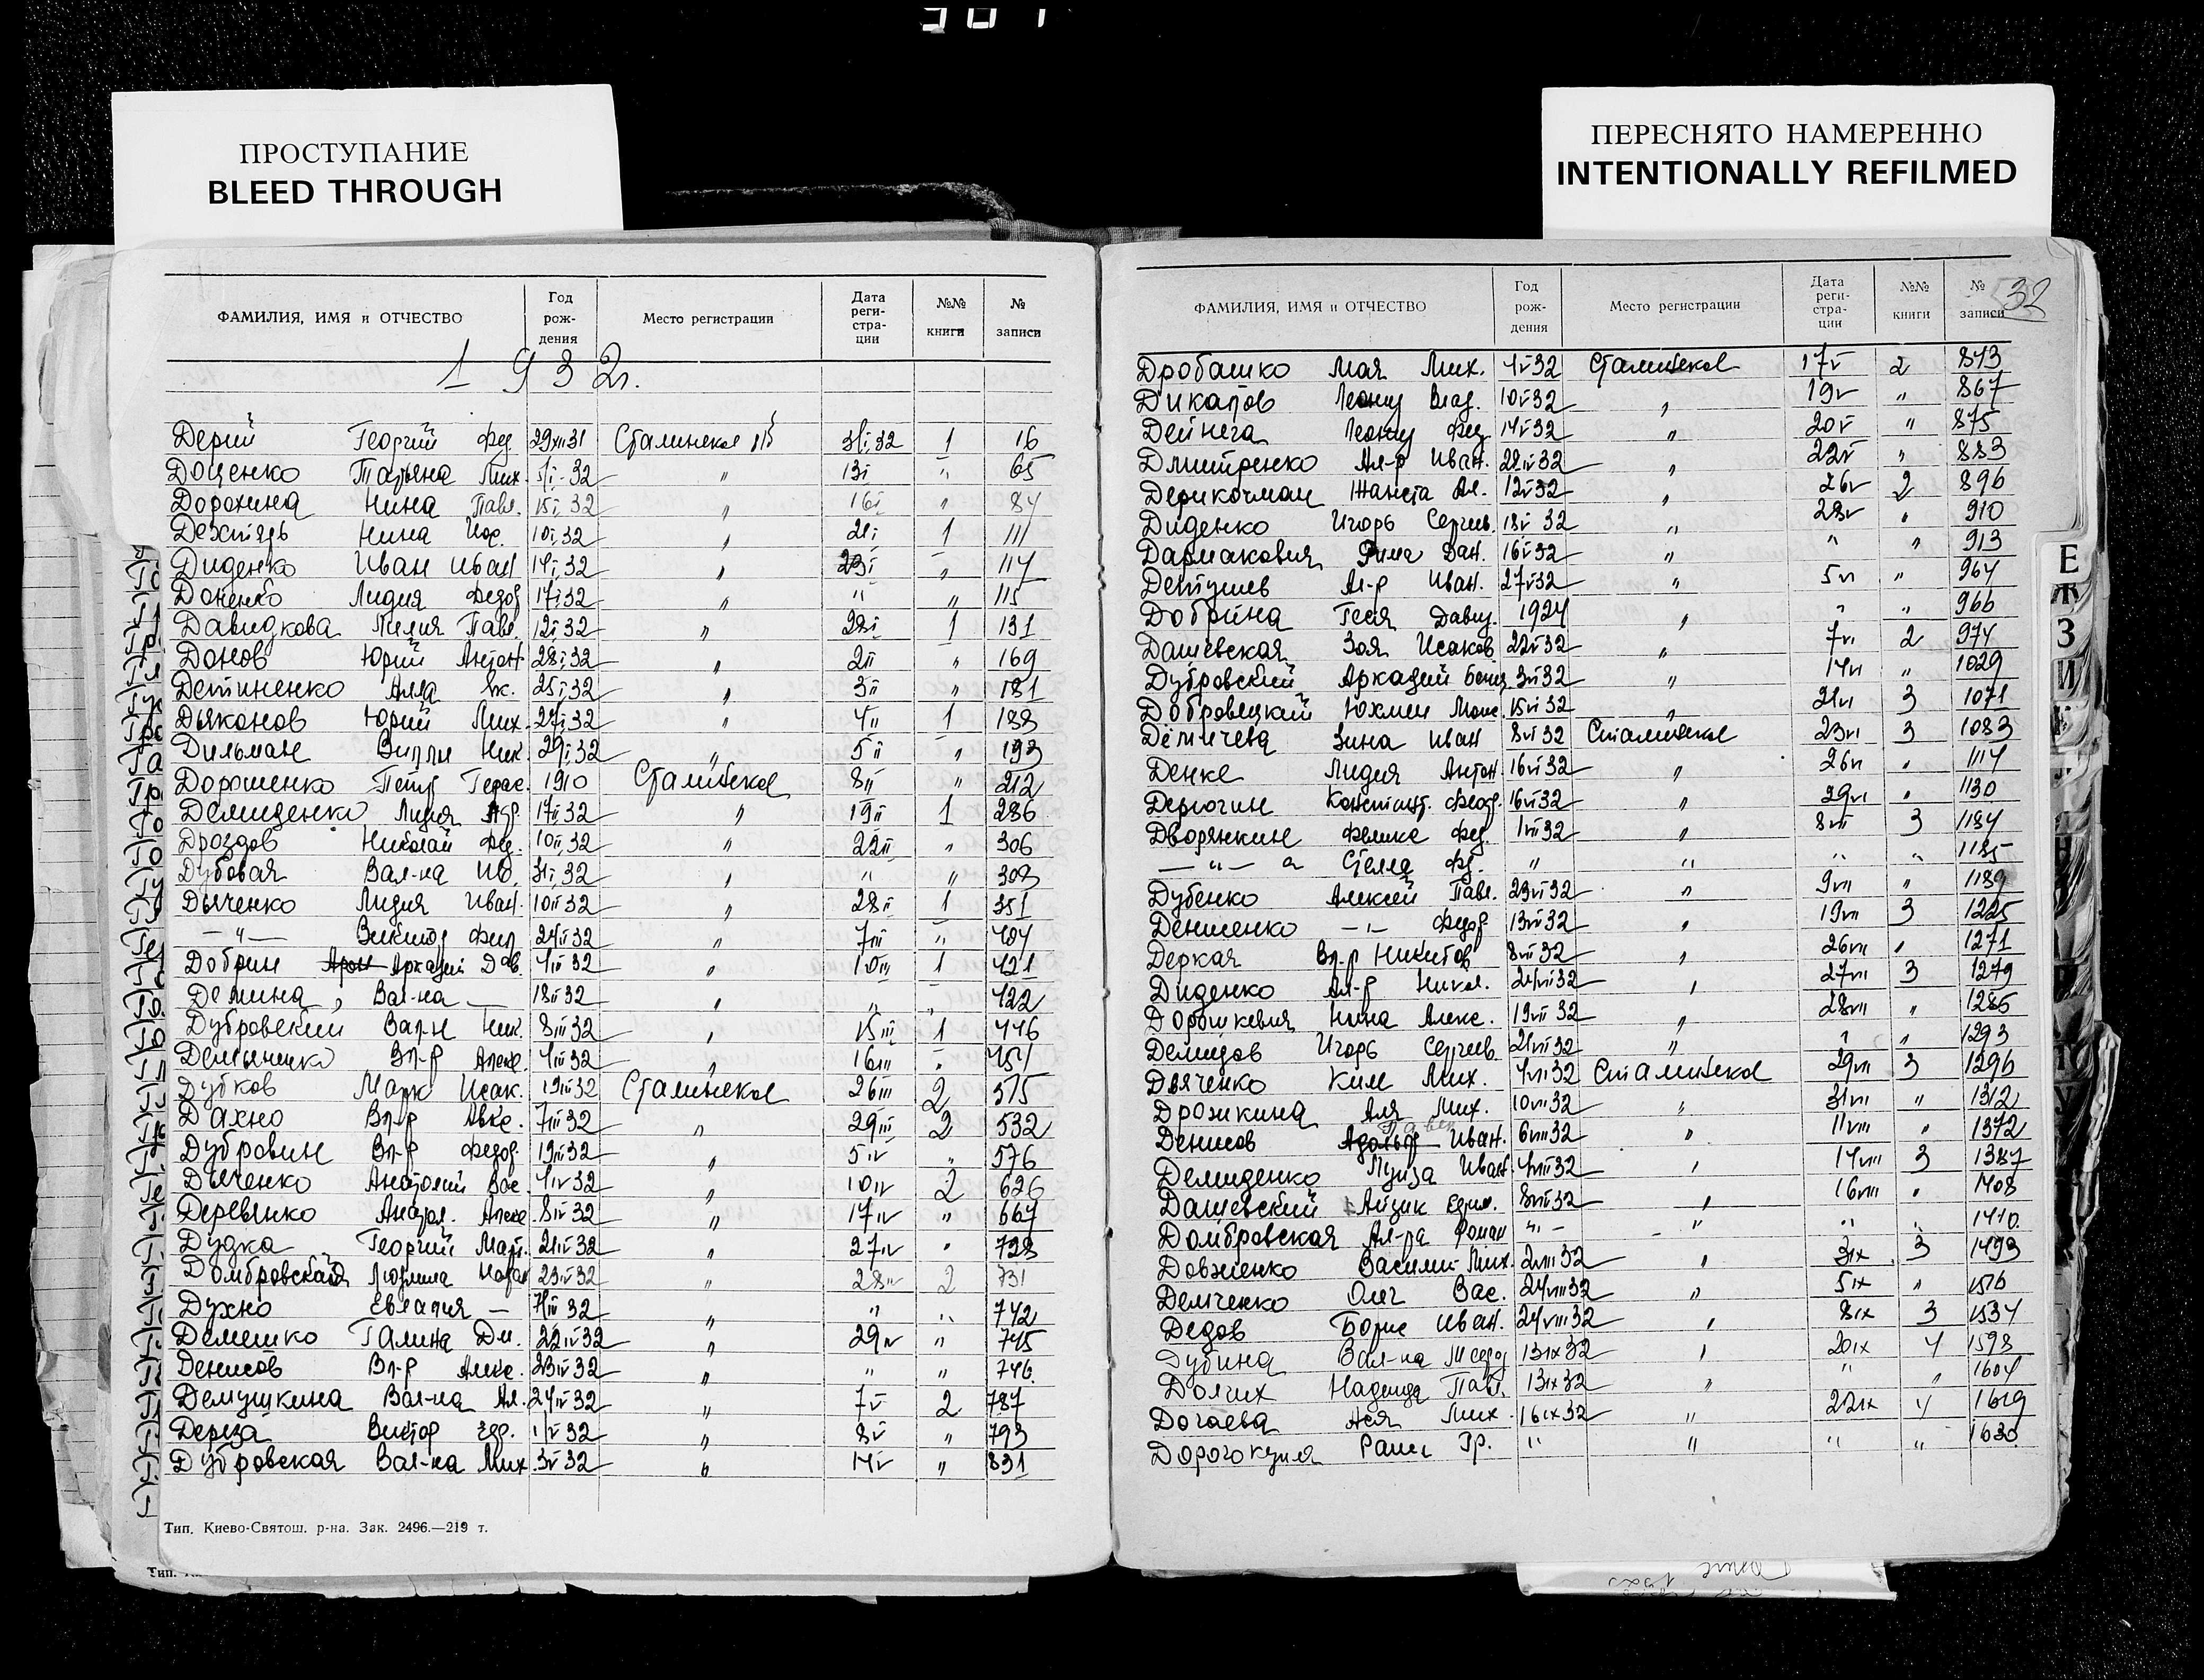 ПРОСТУПАНИЕ
BLEED THROUGH
ПЕРЕСНЯТО НАМЕРЕННО
INTENTIONALLY REFILMED
ФАМИЛИЯ, ИМЯ и ОТЧЕСТВО Год рождения Место регистрации Дата регистрации №№ книги № записи
1932г.
Дерий Георгий Фед. 29XII31 Сталинское 3/I 32 1 16
Доценко Татьяна Мих. 1/I-32 " 13I " 65
Дорохина Нина Павл. 15I 32 " 16I " 84
Дехтярь Нина Иос. 10I 32 " 21I 1 111
Диденко Иван Иван 14I 32 " 23I " 114
Доненко Лидия Федор 17I 32 " " " 115
Давидкова Лилия Павл. 12I 32 " 28I 1 131
Донов Юрий Антон 28I 32 " 2II " 169
Детиненко Алла 25I 32 " 3II " 181
Дьяконов Юрий Мих. 27I 32 " 4II 1 188
Дильман Вилли Ник. 29I 32 " 5II " 193
Дорошенко Петр Герас. 1910 Сталинское 8II " 212
Демиденко Лидия 17II 32 " 19II 1 286
Дроздов Николай Фед. 10II 32 " 22II " 306
Дубовая Вал-на Ив. 31I 32 " " " 308
Дьяченко Лидия Иван. 10II 32 " 28II 1 351
—"— Виктор Фил 24II 32 " 7III " 404
Добрин Аркадий Дав. 4III 32 " 10III 1 421
Демина, Вал-на — 18II 32 " " " 422
Дубровский Вал-н Ник. 8III 32 " 15III 1 446
Демьяненко Вл-р Алекс. 4III 32 " 16III " 451
Дубков Марк Исак. 19III 32 Сталинское 26III 2 515
Дахно Вл-р Авкс. 7III 32 " 29III 2 532
Дубровин Вл-р Федор. 19III 32 " 5IV " 576
Дьяченко Анатолий Вас. 4IV 32 " 10IV 2 626
Деревянко Анатол. Алекс. 8IV 32 " 17IV " 667
Дудка Георгий Мат. 21IV 32 " 27IV " 728
Домбровская Людмила 23IV 32 " 28IV 2 731
Духно Евладия — 7III 32 " " " 742
Демешко Галина Дм. 22IV 32 " 29IV " 745
Денисов Вл-р Алекс. 23IV 32 " " " 746
Демушкина Вал-на Ал. 24IV 32 " 7V 2 787
Дереза Виктор Егр. 1V 32 " 8V " 793
Дубровская Вал-на Мих. 3V 32 " 14V " 831
Тип. Киево-Святош. р-на. Зак. 2496.—219 т.
ФАМИЛИЯ, ИМЯ и ОТЧЕСТВО Год рождения Место регистрации Дата регистрации №№ книги № записи 32
Дробашко Мая Мих. 4V 32 Сталинское 17V 2 843
Дикалов Леонид Влад. 10V 32 " 19V " 867
Дейнега Леонид Фед 14V 32 " 20V " 875
Дмитренко Ал-р Иван. 28IV 32 " 22V " 883
Дерикочман Жанета Ал. 12V 32 " 26V 2 896
Диденко Игорь Сергеев. 18V 32 " 28V " 910
Дармакович Рима 16V 32 " " " 913
Детушев Ал-р Иван. 27V 32 " 5VI " 964
Добрина Геся Давид. 1924 " " " 966
Дашевская Зоя Исаков 22V 32 " 7VI 2 974
Дубровский Аркадий Бения 3VI 32 " 14VI " 1029
Добровецкий Юхмен Моис. 15VI 32 " 21VI 3 1071
Демичева Зина Иван 8VI 32 Сталинское 23VI 3 1083
Денке Лидия Антон 16VI 32 " 26VI " 1114
Дерюгин Констант. Федор. 16VI 32 " 29VI " 1130
Дворянкин Феликс Фед. 1VII 32 " 8VII 3 1184
—"— Стелла Фд. " " " " 1185
Дубенко Алексей Павл. 23VI 32 " 9VII " 1189
Денисенко —"— Федор. 13VII 32 " 19VII 3 1225
Деркая Вл-р Никитов 8VII 32 " 26VII " 1271
Диденко Ал-р Никол. 24VII 32 " 27VII 3 1279
Дорошкевич Нина Алекс. 19VII 32 " 28VII " 1285
Демидов Игорь Сергеев 21VII 32 " " " 1293
Дьяченко Ким Мих. 4VII 32 Сталинское 29VII 3 1296
Дрожкина Аля Мих. 10VII 32 " 31VII " 1312
Денисов Адольф Павел Иван. 6VIII 32 " 11VIII " 1372
Демиденко Луиза Иван. 4VIII 32 " 14VIII 3 1387
Дашевский Айзик 8VIII 32 " 16VIII " 1408
Домбровская Ал-ра Роман " " " " 1410
Довженко Василий Мих. 2VIII 32 " 3IX 3 1493
Демченко Олег Вас. 24VIII 32 " 5IX " 1516
Дедов Борис Иван. 24VIII 32 " 8IX 3 1534
Дубина Вал-на 13IX 32 " 20IX 4 1598
Долгих Надежда Павл. 13IX 32 " " " 1604
Догаева Ася Мих. 16IX 32 " 22IX 4 1619
Дорогокупля Раиса Гр. " " " " 1630